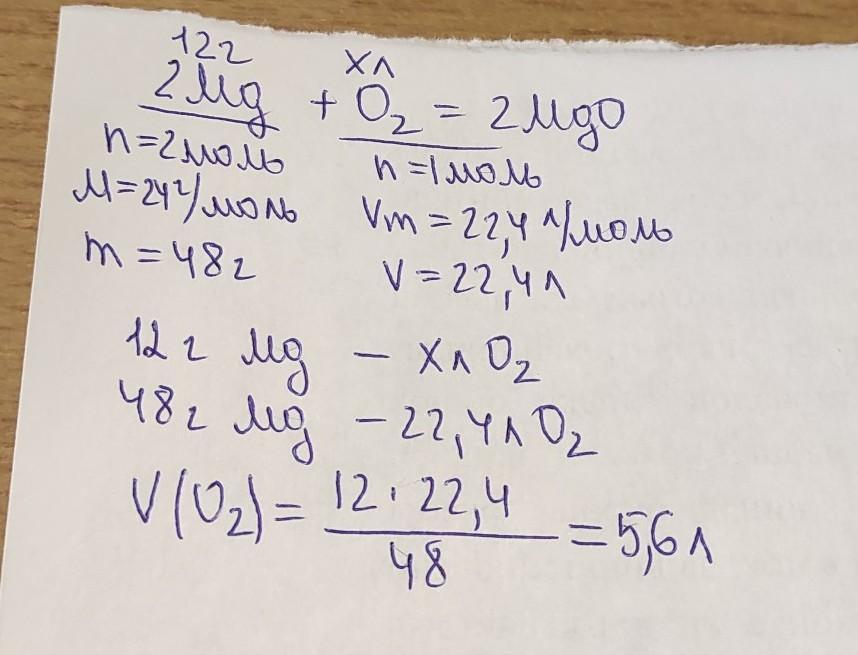 12г
хл
2Mg + O₂ = 2MgO
n=2моль n=1моль
M=24г/моль Vm=22,4л/моль
m=48г V=22,4л
12г Mg – хл O₂
48г Mg – 22,4л O₂
V(O₂)= 12·22,4
48
=5,6л